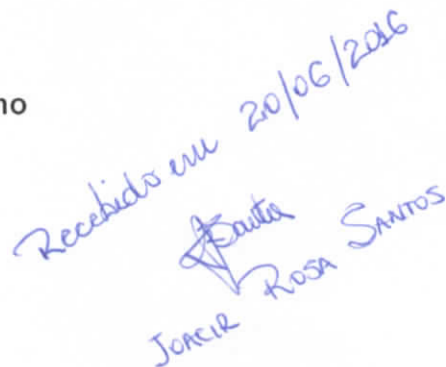 no
Recebido em 20/06/2016
JSantos
JOACIR ROSA SANTOS